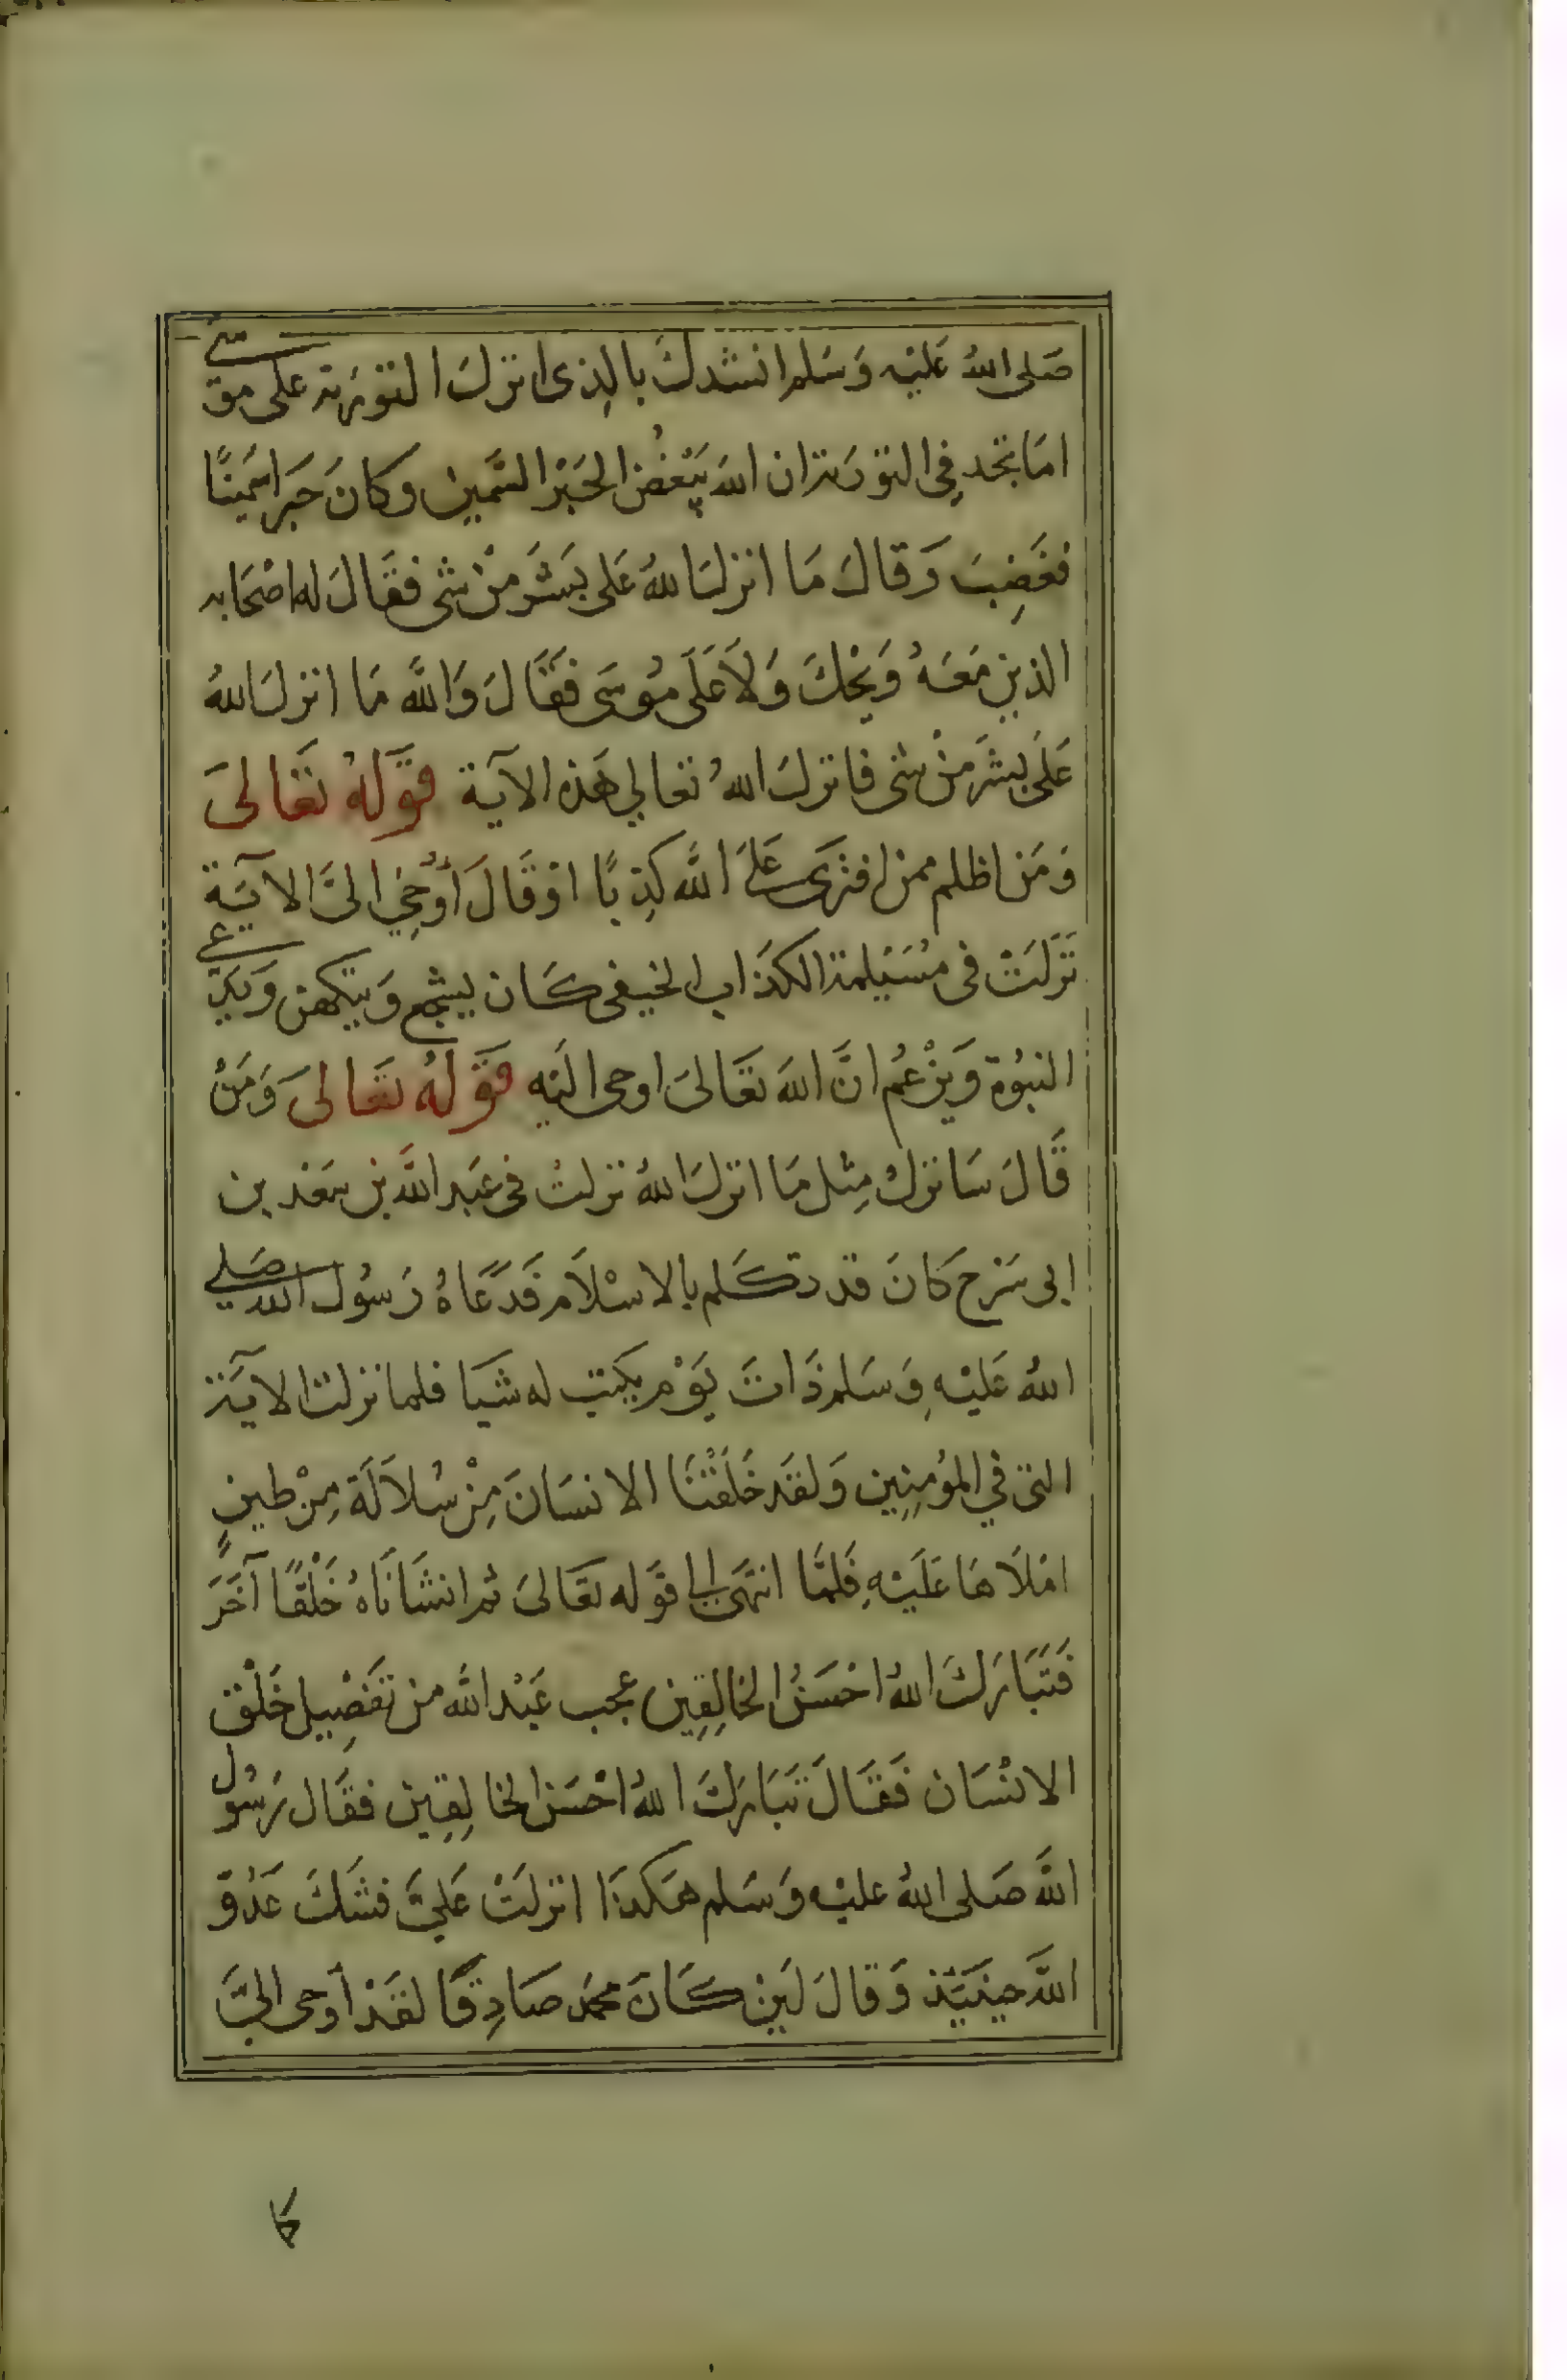 صَلى اللهُ عَليْه وَسَلم انشدكَ بالِذى انزلَ التورَىة على موسى
امَا تجد فِى التورىة ان اللهَ يَبْغُضُ الحَبْرَ السَّمين وكانَ حَبرا سَمينًا
فغَضِبَ وَقالَ مَا انزلَ اللهُ عَلى بَشَر مِنْ شى فقَالَ له اصْحَابه
الذين مَعَهُ وَيْحكَ وَلاَ عَلَى مُوسَى فَقَالَ وَاللَّه مَا انزلَ اللهُ
عَلَى بَشَر مِنْ شى فانزلَ اللهُ تعالي هَذه الآيَة قَوَلهُ تَعَالىَ
وَمَن اظلم ممن افترَى عَلىَ اللَّه كَذِبًا اوْ قَالَ أُوْحِيَ الىَّ الآيَة
نَزَلَتْ فى مُسَيْلمة الكذاب الحنيفى كَان يسْجع وَيتكهن وَيَدّعى
النبُوة وَيزْعُم انَّ اللهَ تعَالىَ اوحى اليْه قَوَلهُ تعَالىَ وَمَنْ
قَالَ سَانزلُ مِثْل مَا انزلَ اللهُ نزلتْ فى عَبد اللَّه بن سَعْد بن
ابى سَرْح كَانَ قد تكَلم بالاسْلاَم فَدَعَاهُ رَسُول الله صَلى
اللهُ عَليْهِ وَسَلم ذَاتَ يَوْم يكتب له شَيا فلما نزلت الايَة
التى فِي المؤمِنِين وَلقَد خَلَقْنَا الانسَانَ مِنْ سُلاَلَة مِنْ طينٍ
امْلاَهَا عَلَيْهِ فَلمَّا انتهَى الى قَوله تعَالىَ ثم انشَانَاهُ خَلْقًا آخَرَ
فَتَبَارَكَ اللهُ احْسَنُ الخالِقِين عجب عَبْد اللَّه من تَفصِيل خَلْق
الانْسَان فَقَالَ تَبَارَكَ اللهُ احْسَن الخالِقِين فقَال رَسُول
اللَّه صَلى اللهُ عليْه وَسَلم هَكذَا انزلَتْ عَليَّ فشَكَ عَدُوّ
اللَّه حِينَئِذ وَقالَ لَئِنْ كَانَ محمد صَادِقًا لقَدْ أوحى اليَّ
كا